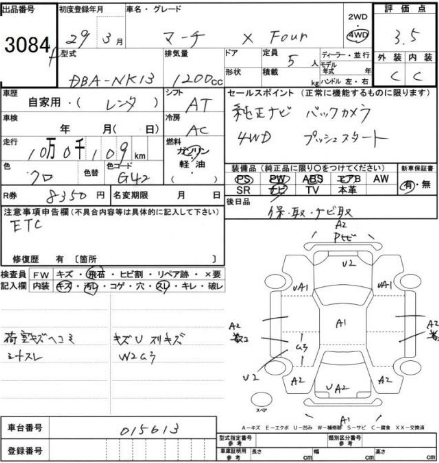 出品番号
3084
初度登録年月
29年 3月
車名・グレード
マーチ X Four
2WD
4WD
評価点
3.5
型式
DBA-NK13
排気量
1200cc
ドア
形状
定員
5人
積載
kg
ディーラー・並行
モデル
年式 年
ハンドル 左・右
外装
C
内装
C
車歴
自家用・(レンタ)
シフト
AT
セールスポイント(正常に機能するものに限ります)
純正ナビ バックカメラ
4WD プッシュスタート
車検
年 月(日)
冷房
AC
走行
10万0千109km
燃料
ガソリン
軽油
色
クロ
色替
色コード
G42
装備品(純正品に限り○をつけてください)
PS PW ABS エアB AW
SR ナビ TV 本革
新車保証書
有・無
R券
8350円
名変期限 月 日
後日品
保・取・ナビ取
注意事項申告欄(不具合内容等は具体的に記入して下さい)
ETC
修復歴 有[箇所 ]
検査員
記入欄
FW キズ・飛石・ヒビ割・リペア跡・×要
内装 キズ・汚レ・コゲ・穴・スレ・キレ・破レ
荷室キズヘコミ
シートスレ
キズU スリキズ
W2ヨ3
A2
Pキビ
U2
UA1
UA1
A2
A1
A2
ヨ3
U2
A2
A2
UA2
A1
スペア
A-キズ E-エクボ U-凹み W-補修跡 S-サビ C-腐食 XX-交換済
車台番号
015613
登録番号
型式指定番号
参考
類別区分番号
参考
車庫証明用
参考
長さ
cm
幅
cm
高さ
cm